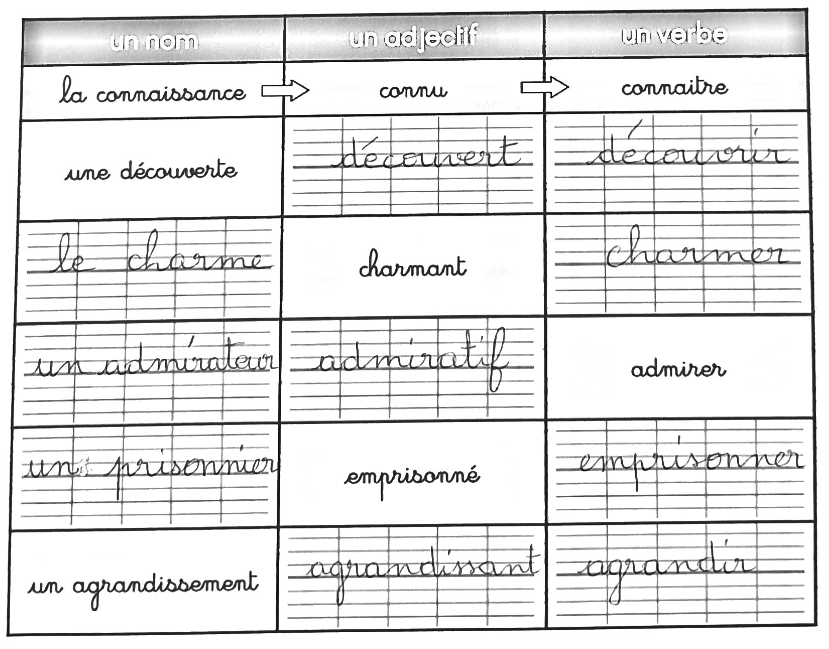 un nom un adjectif un verbe
la connaissance connu connaitre
une découverte découvert découvrir
le charme charmant charmer
un admirateur admiratif admirer
un prisonnier emprisonné emprisonner
un agrandissement agrandissant agrandir